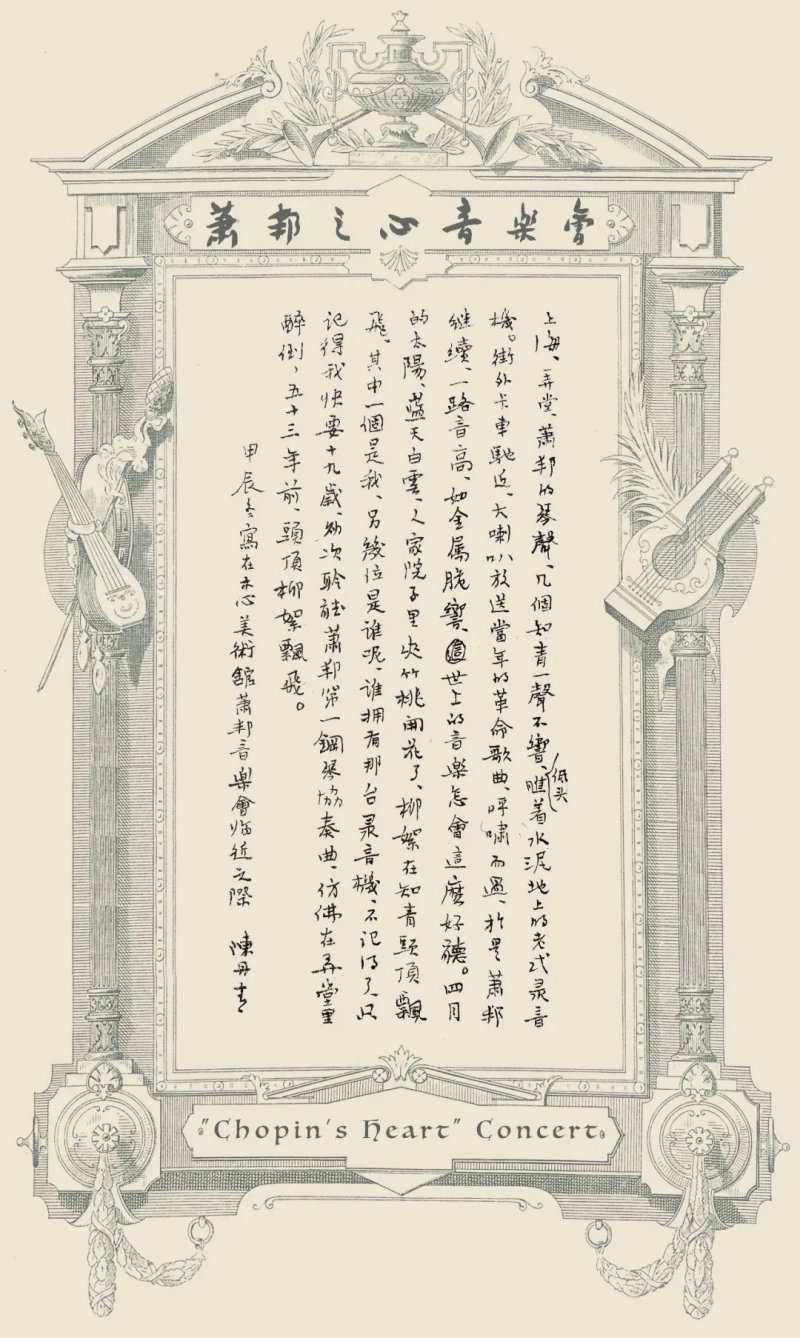 蕭邦之心音樂會
上海、弄堂、蕭邦的琴聲、几個知青一聲不響、低头瞧着水泥地上的老式录音
機。街外卡車馳近、大喇叭放送當年的革命歌曲、呼嘯而過、於是蕭邦
继續、一路音高、如金属脆響、這世上的音樂怎會這麽好聽。四月
的太陽、蓝天白雲、人家院子里夾竹桃開花了、柳絮在知青頭頂飄
飛、其中一個是我、另幾位是谁呢、谁拥有那台录音機、不記得了、只
记得我快要十九歲、初次聆聽蕭邦第一鋼琴協奏曲、仿佛在弄堂里
醉倒、五十三年前、頭頂柳絮飄飛。
甲辰冬寫在木心美術館蕭邦音樂會临近之際 陳丹青
"Chopin's Heart" Concert